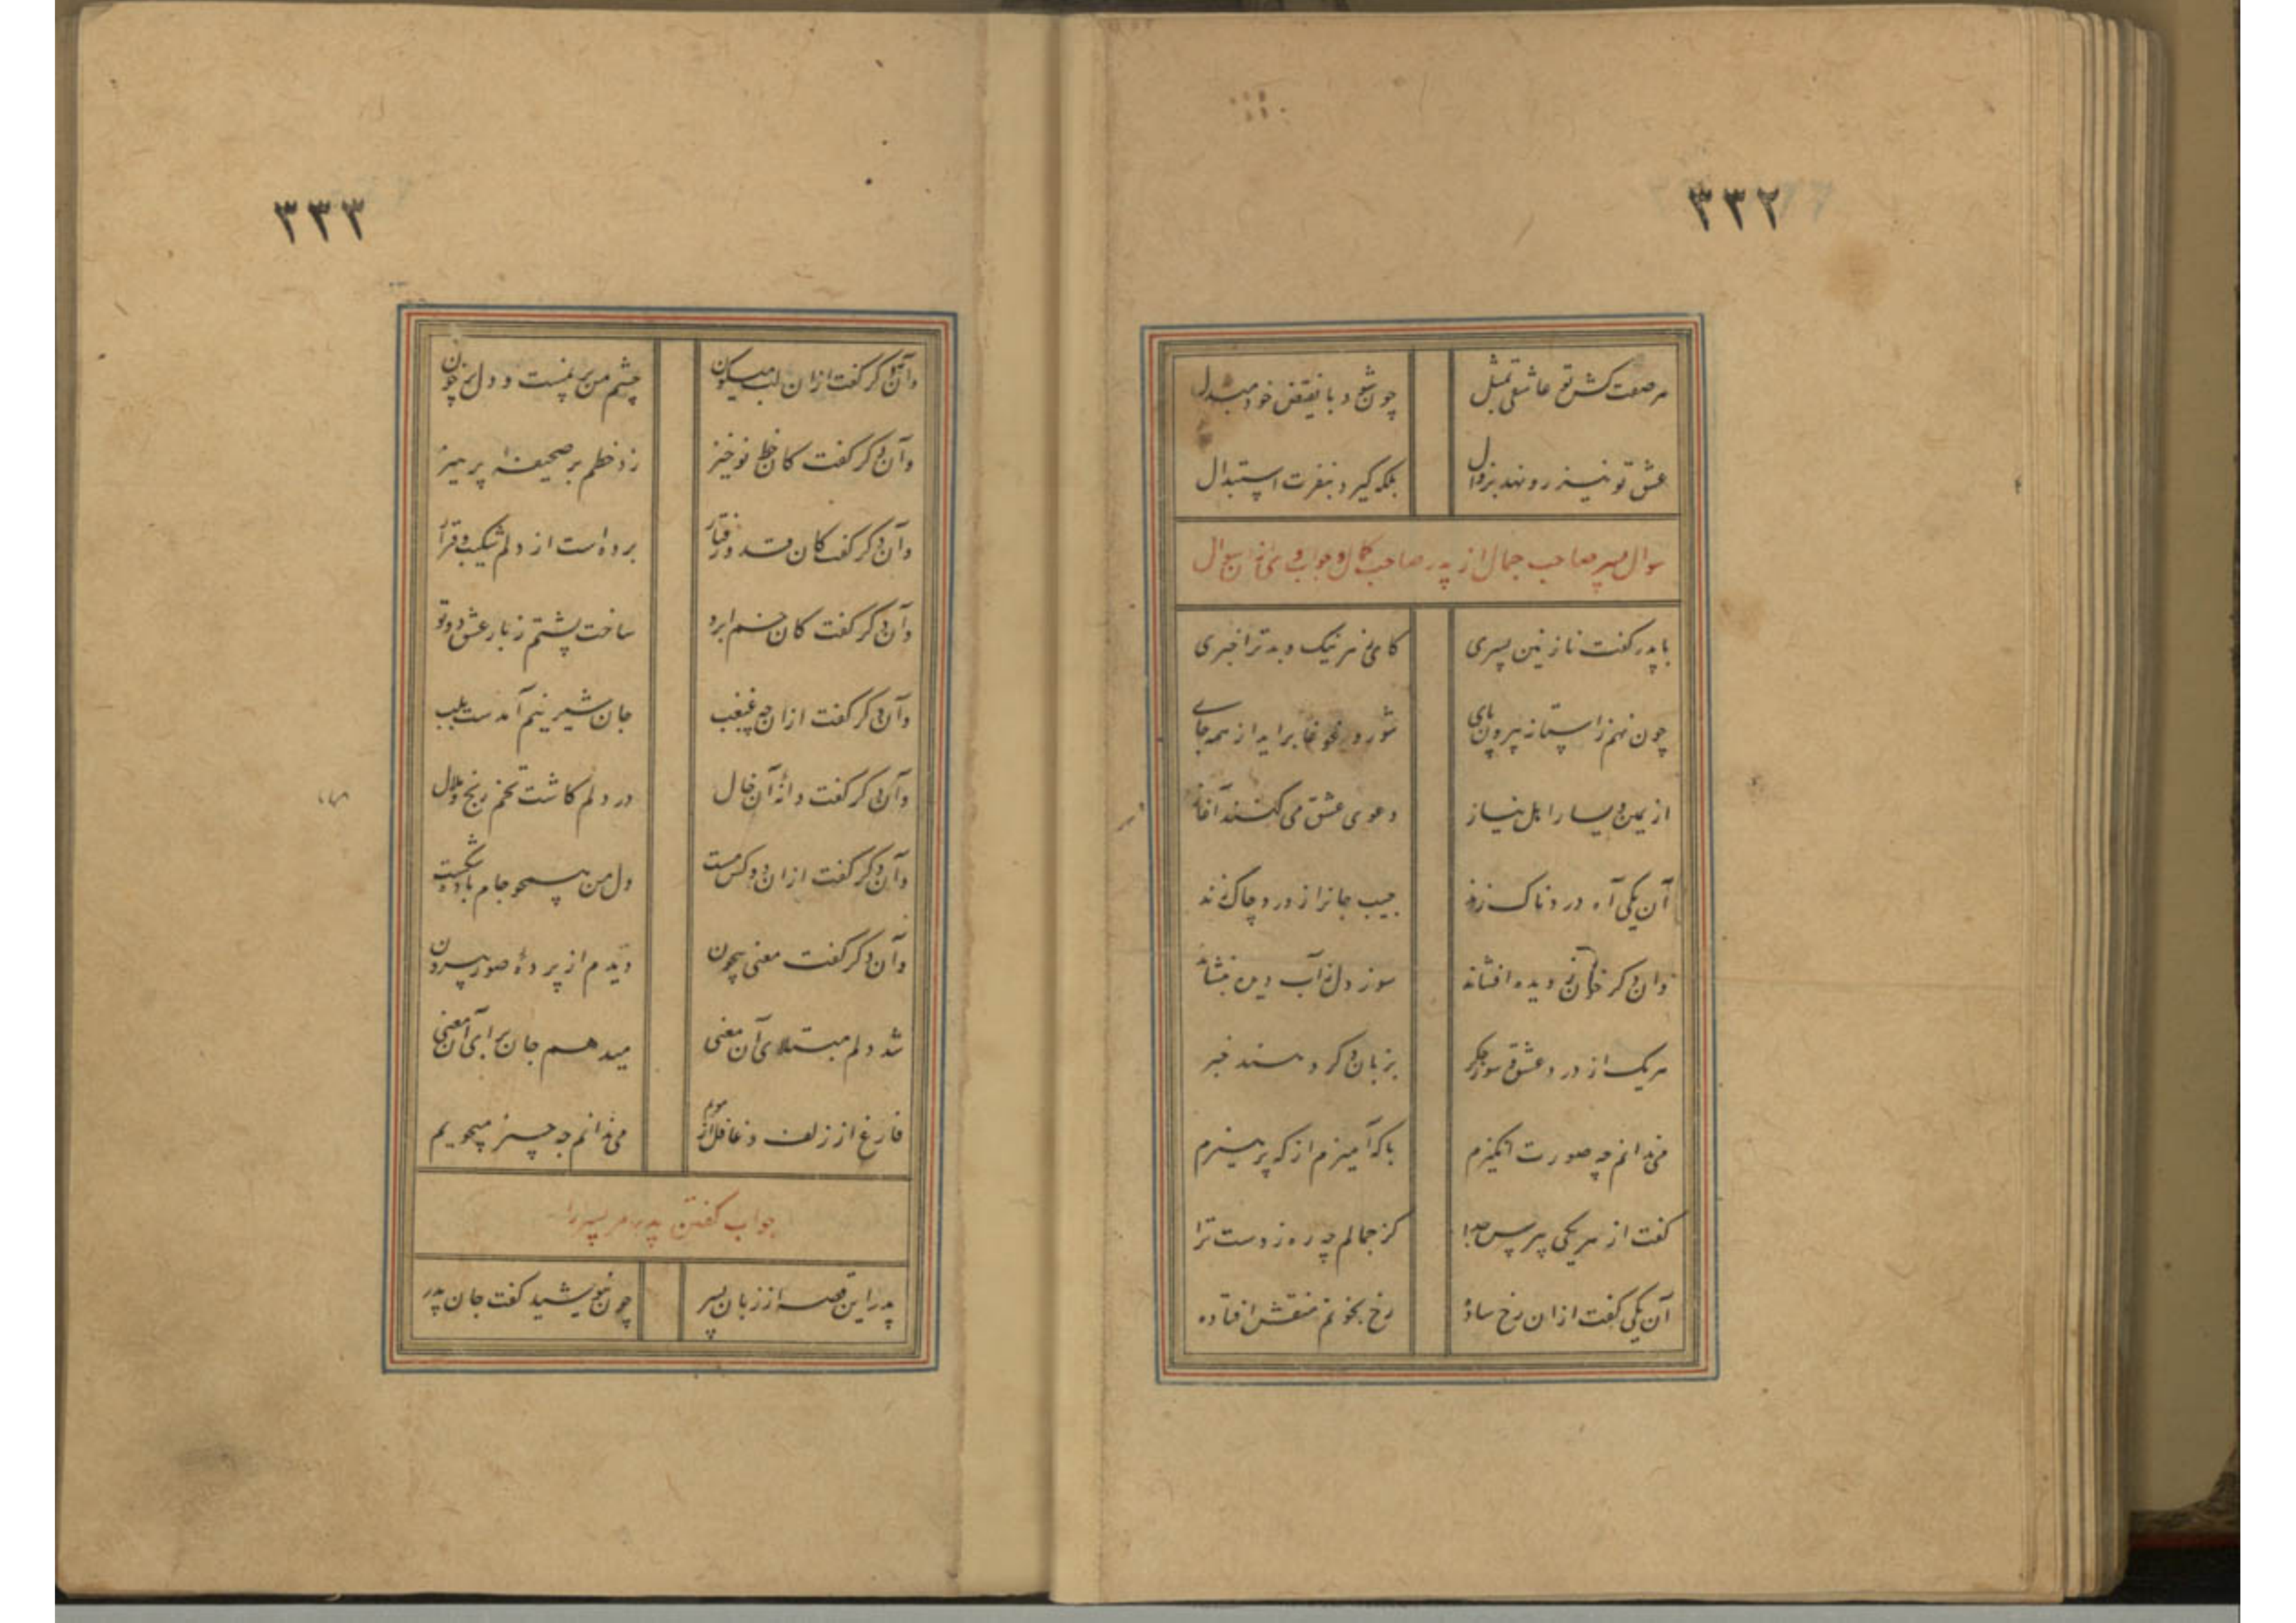 ۳۳۲
هر صفت کش تو عاشقی بمثل چون شود با نقیض خود مبدل
عشق تو نیز رو نهد بزوال بلکه گیرد بنفرت استبدال
سوال پسر صاحب جمال از پدر صاحب کمال و جواب وی از ان سوال
با پدر گفت نازنین پسری کای ز هر نیک و بد ترا خبری
چون نهم ز استانه بیرون پای شور و غوغا براید از همه جای
از یمین و یسار اهل نیاز دعوی عشق می کنند آغاز
آن یکی آه دردناک زند جیب جانرا ز درد چاک زند
وان دگر خون ز دیده افشاند سوز دل ز آب دیده بنشاند
هر یک از درد عشق و سوز جگر بزبان دگر دهند خبر
می ندانم چه صورت انگیزم با که آمیزم از که پرهیزم
گفت از هر یکی بپرس جدا کز جمالم چه ره زدست ترا
آن یکی گفت ازان رخ ساده رخ بخونم منقش افتاده
۳۳۳
وآن دگر گفت ازان لب میگون چشم من پر نمست و دل پر خون
وآن دگر گفت کان خط نوخیز زد خطم بر صحیفه پرهیز
وآن دگر گفت کان قد و رفتار برده است از دلم شکیب و قرار
وآن دگر گفت کان خم ابرو ساخت پشتم ز بار عشق دوتو
وآن دگر گفت ازان چه غبغب جان شیرینم آمدست بلب
وآن دگر گفت دانهٔ آن خال در دلم کاشت تخم رنج و ملال
وآن دگر گفت ازان دو نرگس مست دل من همچو جام باده شکست
وآن دگر گفت معنی بیچون دیدم از پردهٔ صور بیرون
شد دلم مبتلای آن معنی میدهم جان برای آن معنی
فارغ از زلف و غافل از مویم می ندانم چه چیز میجویم
جواب گفتن پدر مر پسر را
پدر این قصه از زبان پسر چون نیوشید گفت جان پدر